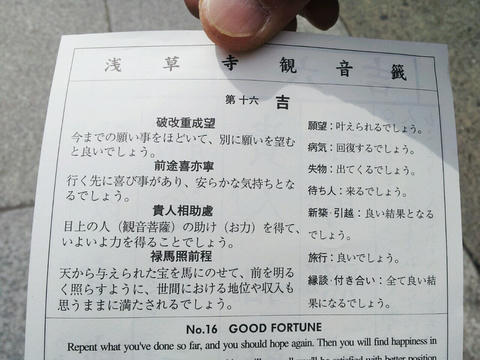 浅草寺観音籤
第十六 吉
破改重成望
今までの願い事をほどいて、別に願いを望む
と良いでしょう。
前途喜亦寧
行く先に喜び事があり、安らかな気持ちとな
るでしょう。
貴人相助處
目上の人（観音菩薩）の助け（お力）を得て、
いよいよ力を得ることでしょう。
禄馬照前程
天から与えられた宝を馬にのせて、前を明る
く照らすように、世間における地位や収入も
思うままに満たされるでしょう。
願望：叶えられるでしょう。
病気：回復するでしょう。
失物：出てくるでしょう。
待ち人：来るでしょう。
新築・引越：良い結果となる
でしょう。
旅行：良いでしょう。
縁談・付き合い：全て良い結
果になるでしょう。
No.16 GOOD FORTUNE
Repent what you've done so far, and you should hope again. Then you will find happiness in
be satisfied with better position